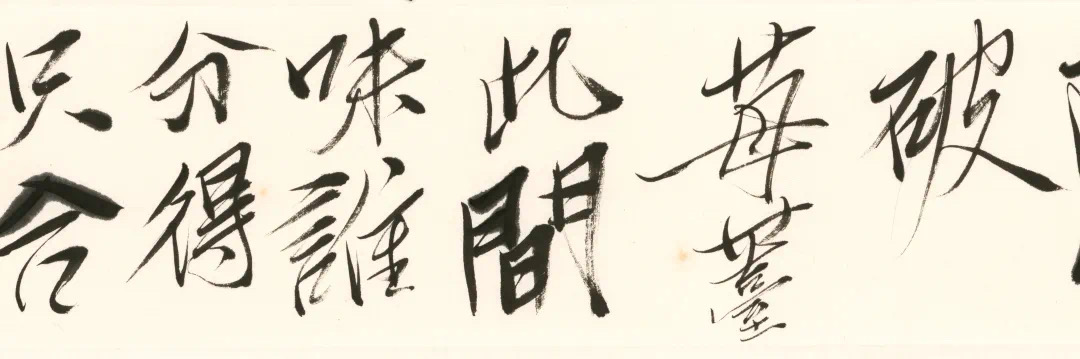 破
莓薹
此間
味誰
分得
只合